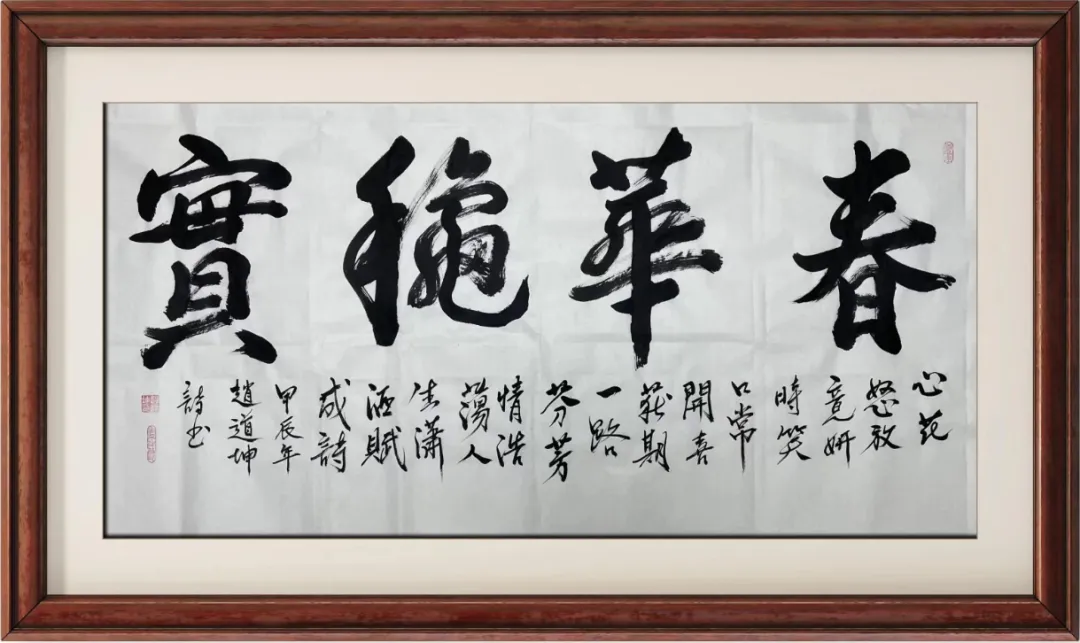 春華穐實
心花
怒放
竟妍
時笑
口常
開喜
期
一路
芬芳
情浩
蕩人
生瀟
洒賦
成詩
甲辰年
趙道坤
詩书